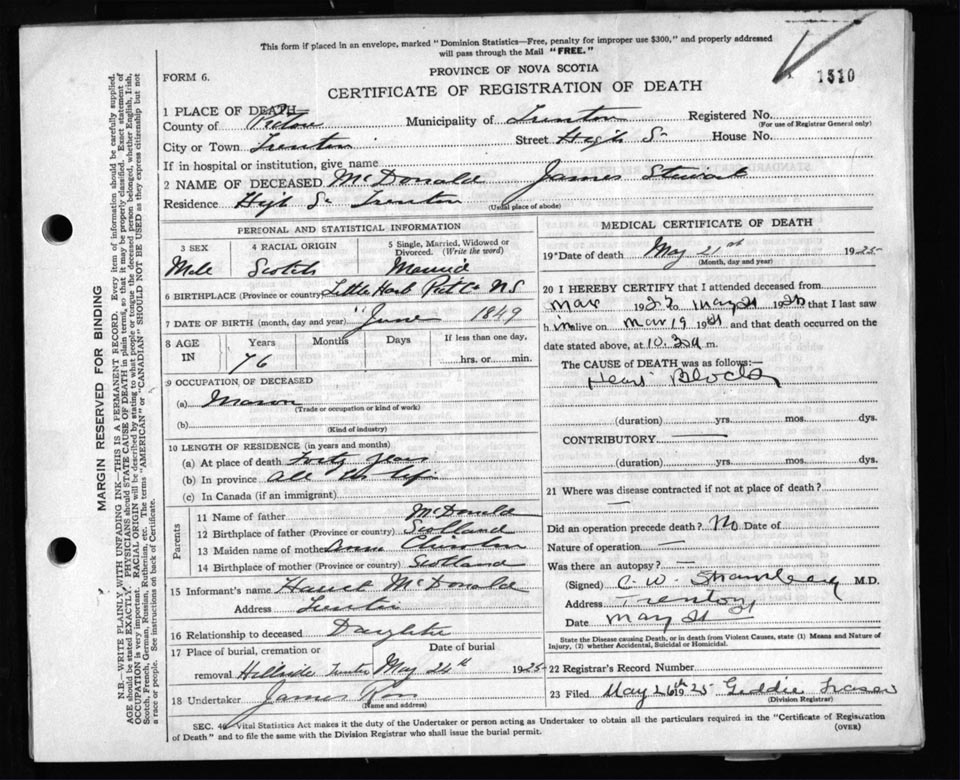 This form if placed in an envelope, marked "Dominion Statistics—Free, penalty for improper use $300," and properly addressed
will pass through the Mail "FREE."
1510
PROVINCE OF NOVA SCOTIA
FORM 6.
CERTIFICATE OF REGISTRATION OF DEATH
1 PLACE OF DEATH—
County of Pictou Municipality of Trenton Registered No.
(For use of Registrar General only)
City or Town Trenton Street High St House No.
If in hospital or institution, give name
2 NAME OF DECEASED McDonald James Stewart
Residence High St Trenton
(Usual place of abode)
PERSONAL AND STATISTICAL INFORMATION
3 SEX 4 RACIAL ORIGIN 5 Single, Married, Widowed or Divorced. (Write the word)
Male Scotch Married
6 BIRTHPLACE (Province or country) Little Harb Pict Co NS
7 DATE OF BIRTH (month, day and year) June 1849
8 AGE IN Years Months Days If less than one day,
76 hrs. or min.
9 OCCUPATION OF DECEASED
(a) Mason
(Trade or occupation or kind of work)
(b)
(Kind of industry)
10 LENGTH OF RESIDENCE (in years and months)
(a) At place of death Forty years
(b) In province All his life
(c) In Canada (if an immigrant)
Parents
11 Name of father McDonald
12 Birthplace of father (Province or country) Scotland
13 Maiden name of mother Anna
14 Birthplace of mother (Province or country) Scotland
15 Informant's name McDonald
Address Trenton
16 Relationship to deceased Daughter
17 Place of burial, cremation or Date of burial
removal Hillside Trenton May 24th 1925
18 Undertaker James
(Name and address)
MEDICAL CERTIFICATE OF DEATH
19 Date of death May 21st 1925
(Month, day and year)
20 I HEREBY CERTIFY that I attended deceased from
Mar 19 to May 21 19 that I last saw
h im alive on Mar 19 19 and that death occurred on the
date stated above, at 10.30 a m.
The CAUSE OF DEATH was as follows:—
Heart Block
(duration) yrs. mos. dys.
CONTRIBUTORY
(duration) yrs. mos. dys.
21 Where was disease contracted if not at place of death?
Did an operation precede death? No Date of
Nature of operation —
Was there an autopsy? —
(Signed) C. W. M.D.
Address Trenton
Date May 21
State the Disease causing Death, or in death from Violent Causes, state (1) Means and Nature of
Injury, (2) whether Accidental, Suicidal or Homicidal.
22 Registrar's Record Number
23 Filed May 26th 1925 Geddie Fraser
(Division Registrar)
SEC. 46 Vital Statistics Act makes it the duty of the Undertaker or person acting as Undertaker to obtain all the particulars required in the "Certificate of Registration
of Death" and to file the same with the Division Registrar who shall issue the burial permit.
(OVER)
MARGIN RESERVED FOR BINDING
N.B.—WRITE PLAINLY WITH UNFADING INK—THIS IS A PERMANENT RECORD. Every item of information should be carefully supplied.
AGE should be stated EXACTLY. PHYSICIANS should STATE CAUSE OF DEATH in plain terms, so that it may be properly classified. Exact statement of
OCCUPATION is very important. RACIAL ORIGIN will be described by stating to what people or tongue the deceased person belonged, whether English, Irish,
Scotch, French, German, Russian, Ruthenian, etc. The terms "AMERICAN" or "CANADIAN" SHOULD NOT BE USED as they express citizenship but not
a race or people. See instructions on back of Certificate.